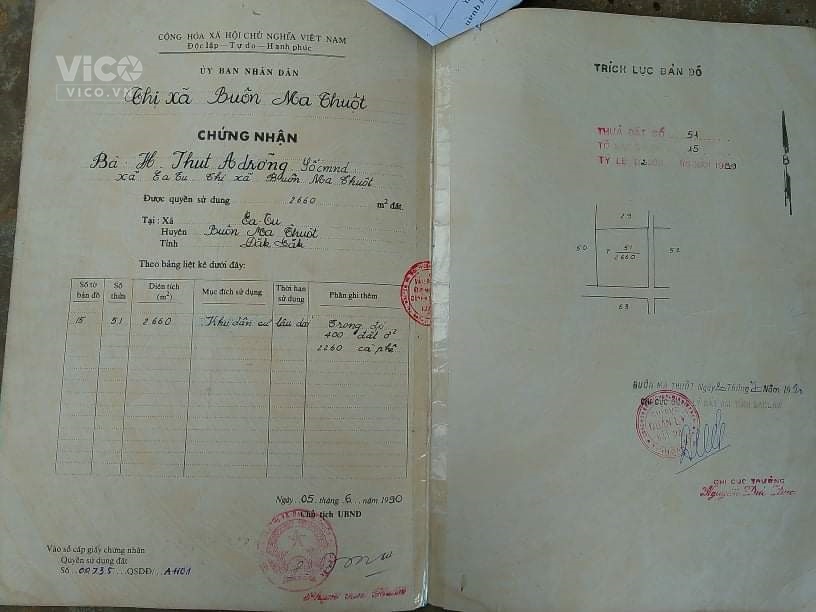 CỘNG HÒA XÃ HỘI CHỦ NGHĨA VIỆT NAM
Độc lập — Tự do — Hạnh phúc
VICO
VICO.VN
ỦY BAN NHÂN DÂN
Thị xã Buôn Ma Thuột
CHỨNG NHẬN
Bà H. Thut Adrơng Số cmnd
xã Ea Tu Thị xã Buôn Ma Thuột
Được quyền sử dụng 2660 m² đất.
Tại: Xã Ea Tu
Huyện Buôn Ma Thuột
Tỉnh Đăk Lăk
Theo bảng liệt kê dưới đây:
Số tờ bản đồ Số thửa Diện tích (m²) Mục đích sử dụng Thời hạn sử dụng Phần ghi thêm
15 51 2660 Khu dân cư lâu dài Trong đó
400 đất ở
2260 cà phê
Ngày 05 tháng 6 năm 1990
Chủ tịch UBND
Vào sổ cấp giấy chứng nhận
Quyền sử dụng đất
Số 02735 QSDĐ/ A1101
TRÍCH LỤC BẢN ĐỒ
THỬA ĐẤT SỐ 51
TỜ 15
TỶ LỆ
29
50 T 51 52
2660
63
BUÔN MA THUỘT Ngày Tháng Năm
CHI CỤC
QUẢN LÝ
CHI CỤC TRƯỞNG
Nguyễn